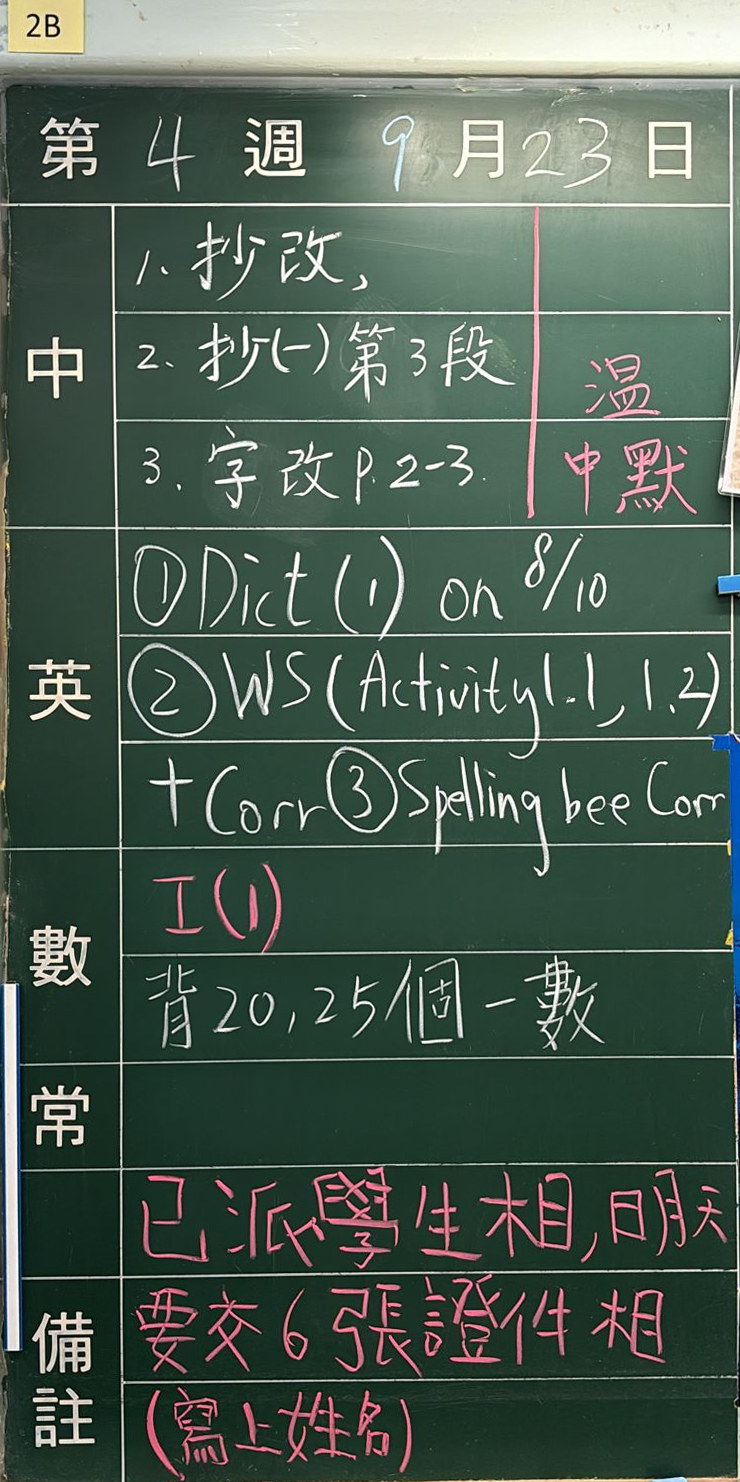 2B
第 4 週 9 月 23 日
中
1. 抄改,
2. 抄(一)第3段
3. 字改P.2-3.
温
中默
英
①Dict (1) on 8/10
②WS(Activity1.1, 1.2)
+Corr③Spelling bee Corr
數
I(1)
背20,25個一數
常
已派學生相,明天
備註
要交6張證件相
(寫上姓名)